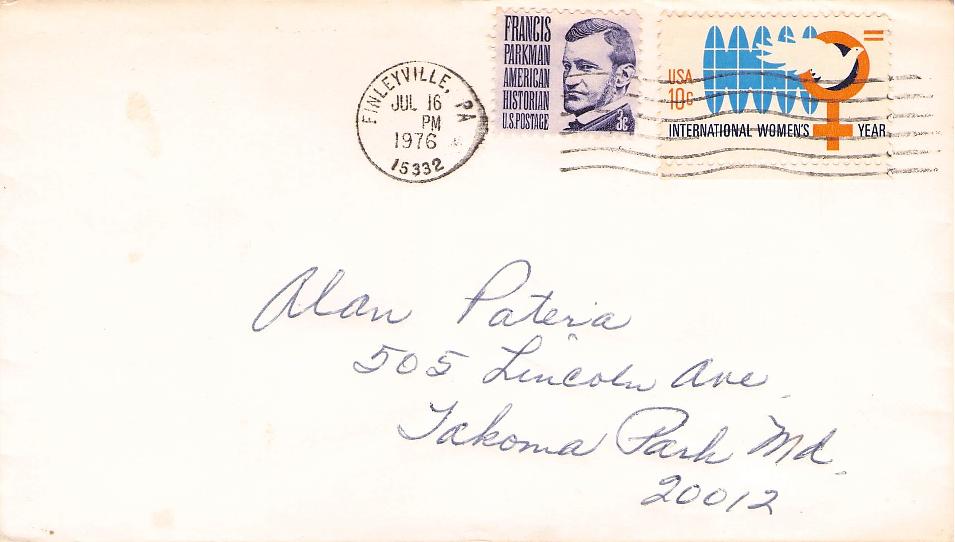 FRANCIS
PARKMAN
AMERICAN
HISTORIAN
U.S. POSTAGE
3c
USA
10c
INTERNATIONAL WOMEN'S YEAR
FINLEYVILLE, PA
JUL 16
PM
1976
15332
Alan Patera
505 Lincoln Ave.
Takoma Park Md.
20012